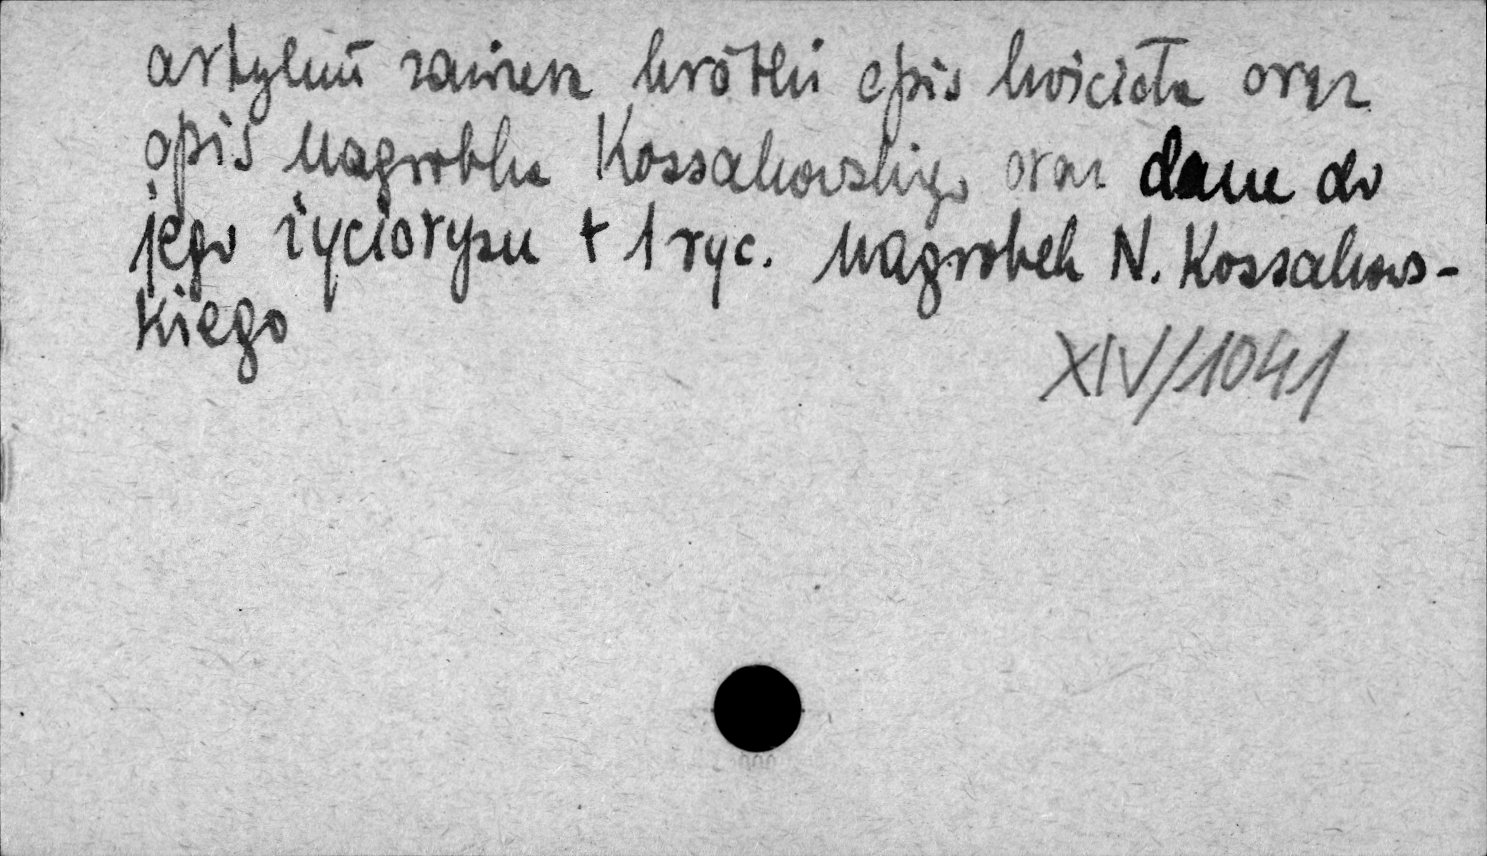 artykuł zawiera krótki opis kościoła oraz
opis nagrobka Kossakowskiego oraz dane do
jego życiorysu + 1 ryc. nagrobek N. Kossakows-
kiego
XIV/1041